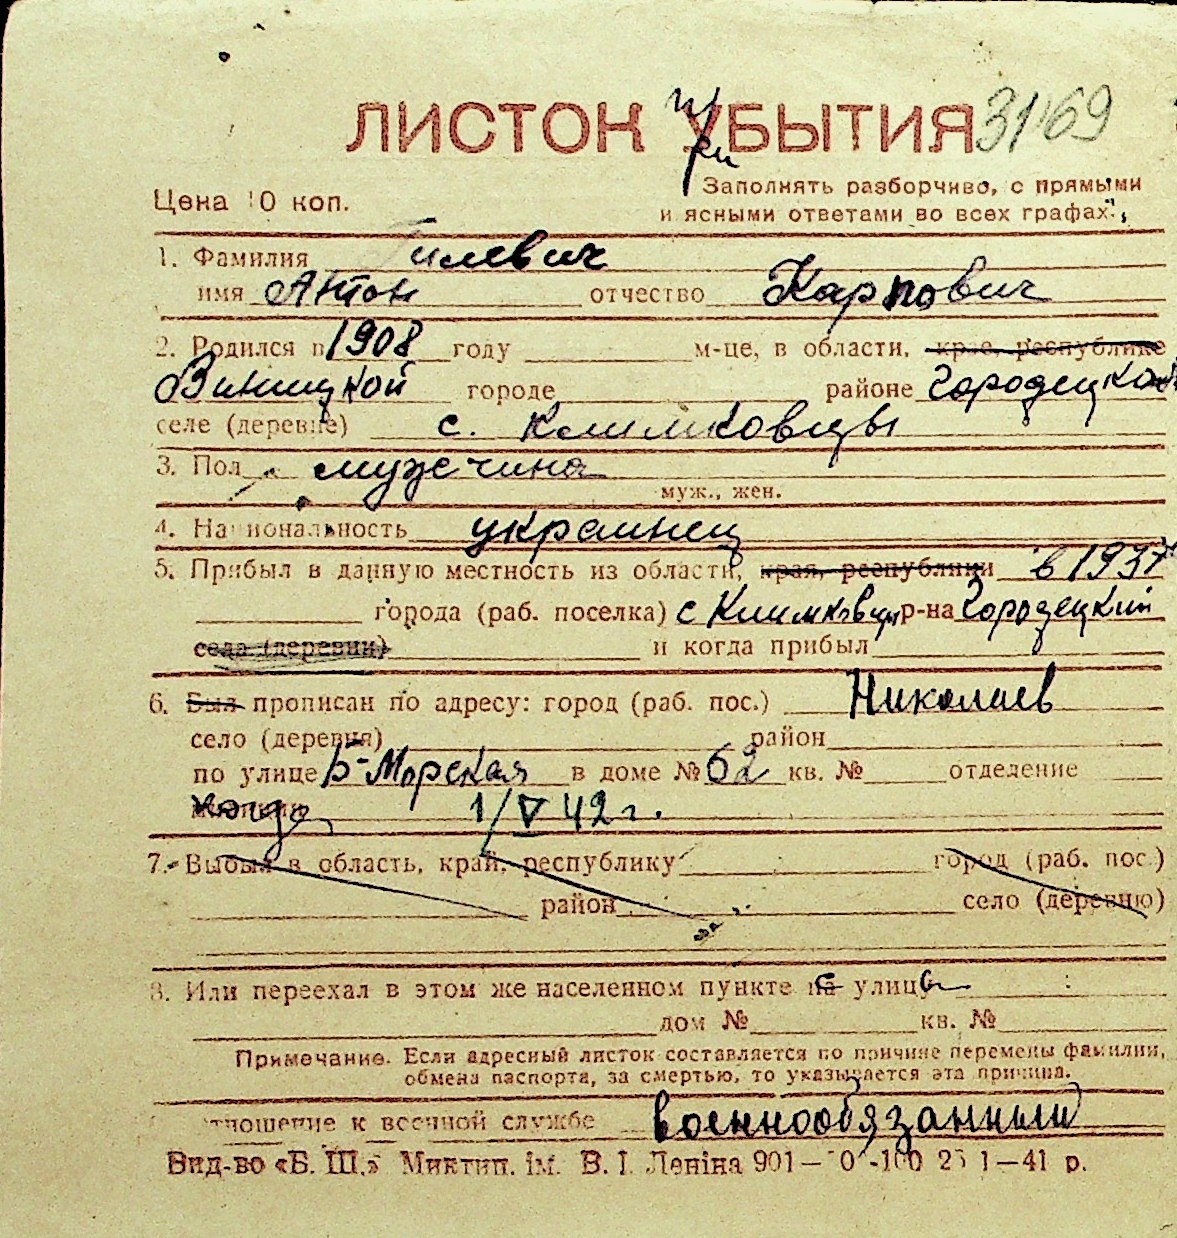 ЛИСТОК УБЫТИЯ 3169
при
Цена 10 коп.
Заполнять разборчиво, с прямыми
и ясными ответами во всех графах.
1. Фамилия Гилевич
имя Антон отчество Карпович
2. Родился в 1908 году м-це, в области, крае, республике
Виницкой городе районе Городецком
селе (деревне) с. Климковцы
3. Пол мужчина
муж., жен.
4. Национальность украинец
5. Прибыл в данную местность из области, края, республики в 1937
города (раб. поселка) с Климковцы р-на Городецкий
села (деревни) и когда прибыл
6. Был прописан по адресу: город (раб. пос.) Николаев
село (деревня) район
по улице Б-Морская в доме № 62 кв. № отделение
милиции когда 1/V 42 г.
7. Выбыл в область, край, республику город (раб. пос.)
район село (деревню)
8. Или переехал в этом же населенном пункте на с улицы
дом № кв. №
Примечание. Если адресный листок составляется по причине перемены фамилии,
обмена паспорта, за смертью, то указывается эта причина.
Отношение к военной службе военнообязанный
Вид-во «Б. Ш.» Миктип. ім. В. І. Леніна 901— 1—41 р.